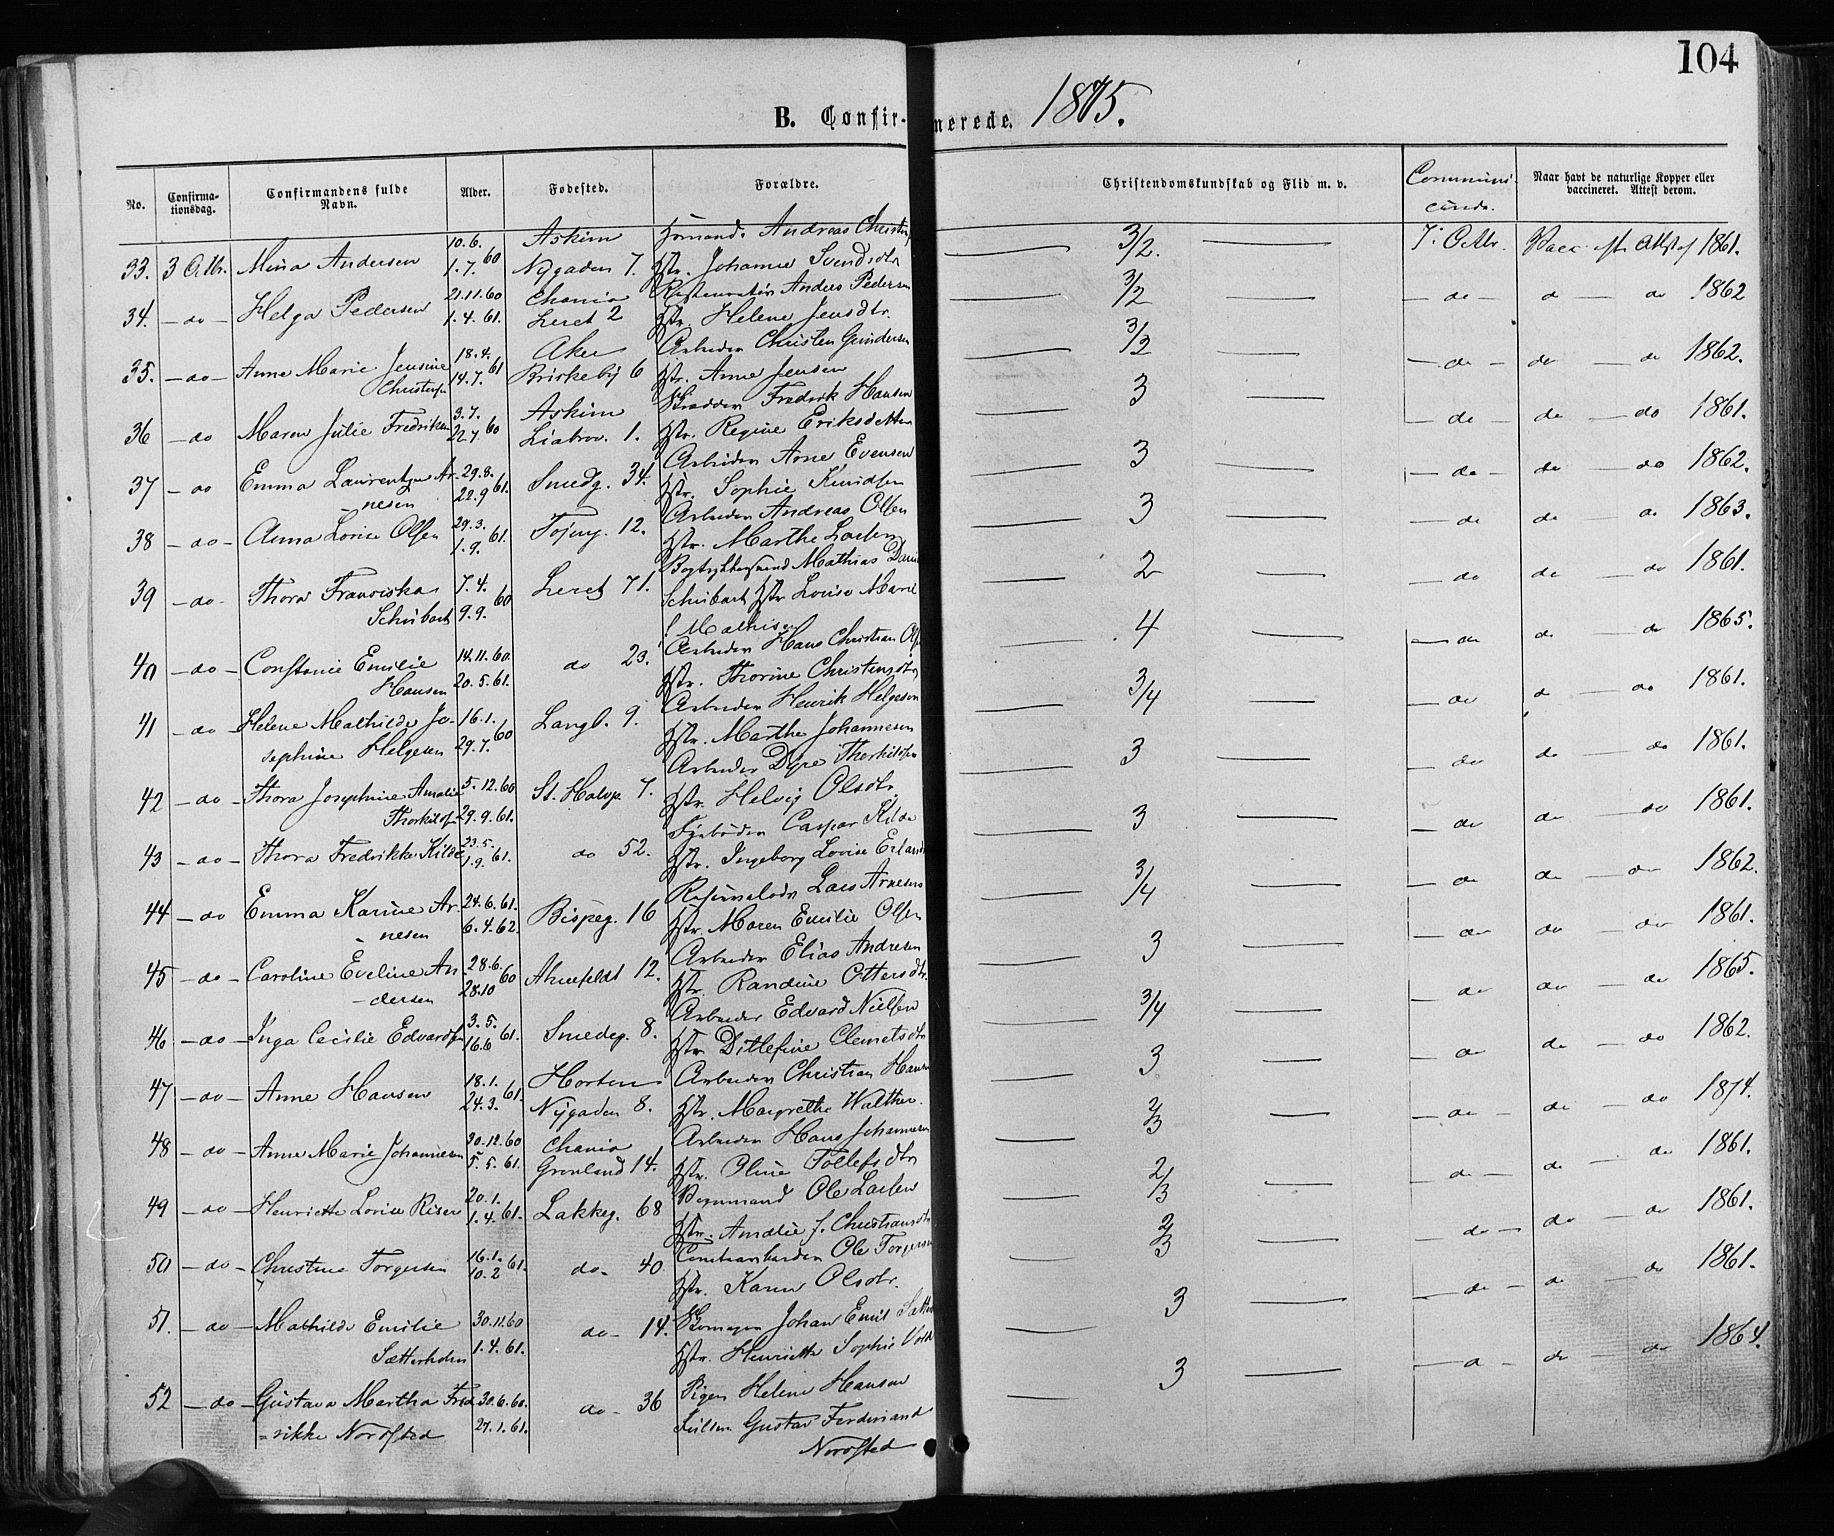 104
B. Confirmerede. 1875.
No. Confirmationsdag. Confirmandens fulde Navn. Alder. Fødested. Forældre. Christendomskundskab og Flid m. v. Communicunda. Naar havt de naturlige Kopper eller vaccineret. Attest derom.
33. 3 Octbr. Mina Andersen 10.6. 1.7. 60 Askim Nygaden 7. Andreas Christ Hstr. Johanne Svendsdtr 3/2. 7. Octbr. Vacc. 1861.
34. – do – Helga Pedersen 21.11.60 1.4.61. Chania Leret 2 Anders Pedersen Hstr. Helene Jensdtr. 3/2 – do – d – do 1862
35. – do – Anne Marie Jensine Christ 18.4. 14.7. 61 Aker Briskeby 6 Arbeider Christen Gundersen Hstr. Anne Jensen 3/2 – do – do – do 1862.
36 – do Maren Julie Fredriksen 3.7. 22.7 60 Askim Liabrov. 1. Skrædder Fredrik Hansen Hstr. Regine Eriksdatter 3 – do – do – do 1861.
37 – do Emma Laurentze Arnesen 29.8. 22.9 61. Smedg. 34. Arbeider Arne Evensen Hstr. Sophie Knudsen 3 – do – do – do 1862.
38 – do – Anna Lovise Olsen 29.3. 1.9. 61. Tøjeng. 12. Arbeider Andreas Olsen Hstr. Marthe Larsen 3 – do do – do 1863.
39 – do – Thora Franciska Schubart 7.4. 9.9. 60 Leret 71. Bogtrykkersvend Mathias Dani Schubart Hstr Louise Marie f. Mathisen 2 – do do – do 1861.
40 – do – Constance Emilie Hansen 14.11.60. 20.5.61. do 23. Arbeider Hans Christian Ols Hstr. Thorine Christensdtr 4 – do do – do 1865.
41 – do – Helene Mathilde Josephine Helgesen 16.1. 29.7. 60 Langl. 9. Arbeider Henrik Helgesen Hstr. Marthe Johannesen 3/4 – do d – do 1861.
42 – do – Thora Josephine Amalie Thorkilds 5.12.60 29.9.61. St. Halvp. 7. Arbeider Dyre Thorkildsen Hstr. Helvig Olsdtr. 3 – do do – do 1861.
43 – do – Thora Fredrikke Kilde 23.5. 1.9. 61. do 52. Fyrbøder Caspar Kilde Hstr. Ingeborg Lovise Erlands 3 – do do – do 1861.
44 – do Emma Karine Arnesen 24.6.61. 6.4.62. Bispeg. 16 Lars Arnesen Hstr. Maren Emilie Olsen 3/4 – do do – do 1862.
45 – do – Caroline Eveline Andersen 28.6. 28.10 60 Ahnefeldt 12. Arbeider Elias Andresen Hstr. Randine Ottersdtr. 3 – do do – do 1861.
46 – do – Inga Cecilie Edvardsen 3.5. 16.6 61. Smedeg. 8. Arbeider Edvard Nielsen Hstr. Ditlefine Clemetsdtr 3/4 – do do – do 1865.
47 – do – Anne Hansen 18.1. 24.3. 61. Horten Nygaden 8. Arbeider Christian Hansen Hstr. Margrethe Walther. 3 – do do – do 1862.
48 – do – Anne Marie Johannesen 30.12.60 5.5.61. Chania Grønland 14. Arbeider Hans Johannesen Hstr. Oline Tollefsdtr 2/3 – do – do – do 1874.
49 – do – Henriette Lovise Riser 20.1. 1.4. 61. Lakkeg. 68 Ole Larsen Hstr. Amalie f. Christiansdtr 2/3 – do – do – do 1861.
50 – do – Christine Torgersen 16.1. 10.2 61. do – 40 Ole Torgersen Hstr. Karen Olsdtr. 2/3 – do – do – do 1861.
51. – do – Mathilde Emilie Sætterholm 30.11.60 1.4.61. do – 14. Skomager Johan Emil Sætter Hstr. Henriette Sophie Vold 3 – do – d – do 1861.
52 – do – Gustava Martha Fredrikke Nordsted 30.6.60. 27.1.61. do – 36 Pigen Helene Hansen Gustav Ferdinand Nordsted 3 – d – do – do 1864.